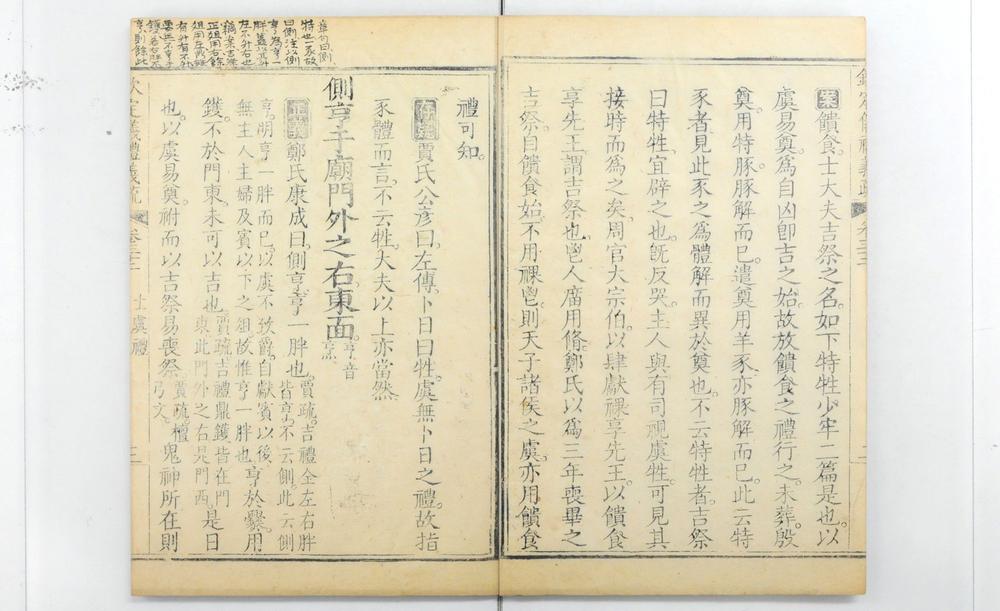 案饋食士大夫吉祭之名如下特牲少牢二篇是也以
虞易奠爲自凶卽吉之始故放饋食之禮行之未葬殷
奠用特豚豚解而已遣奠用羊豕亦豚解而已此云特
豕者見此豕之爲體解而異於奠也不云特牲者吉祭
曰特牲宜辟之也旣反哭主人與有司視虞牲可見其
接時而爲之矣周官大宗伯以肆獻祼享先王以饋食
享先王謂吉祭也鬯人廟用脩鄭氏以爲三年喪畢之
吉祭自饋食始不用祼鬯則天子諸侯之虞亦用饋食
禮可知
存疑賈氏公彦曰左傳卜日曰牲虞無卜日之禮故指
豕體而言不云牲大夫以上亦當然
側亨于廟門外之右東面亨音烹
正義鄭氏康成曰側亨亨一胖也賈疏吉禮全左右胖皆亨不云側此云側
亨明亨一胖而已以虞不致爵自獻賓以後無主人主婦及賓以下之俎故惟亨一胖也亨於爨用
鑊不於門東未可以吉也賈疏吉禮鼎鑊皆在門東此門外之右是門西是日
也以虞易奠祔而以吉祭易喪祭賈疏檀弓文鬼神所在則
欽定儀禮義疏
卷三十二
士虞禮
章句曰側
特也一豕故
曰側注以側
亨爲亨一
胖蓋以
左不升右也